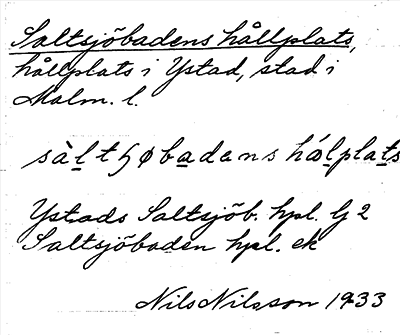 Saltsjöbadens hållplats,
hållplats i Ystad, stad i
Malm. l.
sàltʃøbadens hálplats
Ystads Saltsjöb. hpl. G 2
Saltsjöbaden hpl. ek
Nils Nilsson 1933